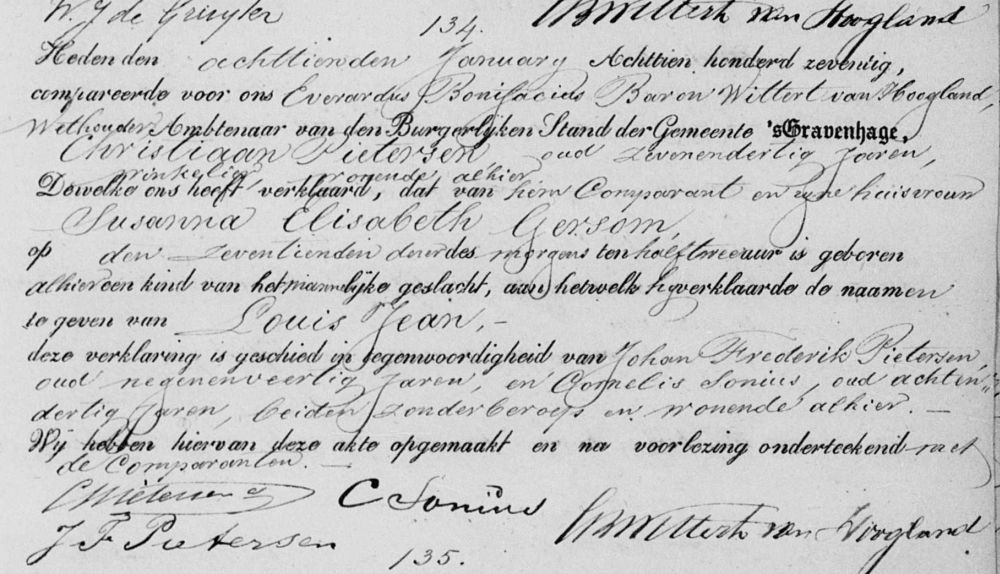 W. J de Gruyter
134.
EBWittert van Hoogland
Heden den achttienden January Achttien honderd zeventig,
compareerde voor ons Everardus Bonifacius Baron Wittert van Hoogland,
Wethouder Ambtenaar van den Burgerlijken Stand der Gemeente 'sGravenhage,
Christiaan Pietersen oud zevenendertig Jaren,
winkelier wonende alhier
Dewelke ons heeft verklaard, dat van hem Comparant en zyne huisvrouw
Susanna Elisabeth Gersom,
op den zeventienden dezer des morgens ten half twee uur is geboren
alhier een kind van het mannelijke geslacht, aan hetwelk hy verklaarde de naamen
te geven van Louis Jean,-
deze verklaring is geschied in tegenwoordigheid van Johan Frederik Pietersen,
oud negenenveertig Jaren, en Cornelis Sonius, oud achten"
dertig Jaren, beiden zonder beroep en wonende alhier. -
Wij hebben hiervan deze akte opgemaakt en na voorlezing onderteekend met
de Comparanten. -
C Pietersen
C Sonius
J F Pietersen
EBWittert van Hoogland
135.